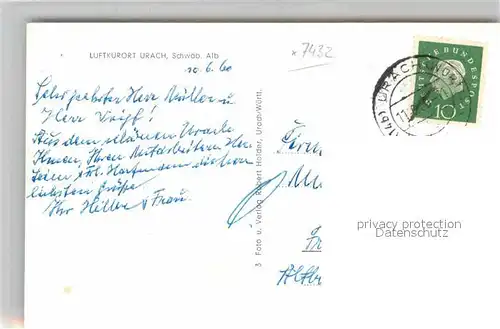 LUFTKURORT URACH, Schwäb. Alb
10.6.60
* 7432
Sehr geehrter Herr Müller u.
Herr Voigt!
Aus dem schönen Urach
Ihnen, Ihren Mitarbeitern
Frl. Hartmann die herz
lichsten Grüße
Ihr Hiller & Frau.
3 Foto u. Verlag Robert Holder, Urach/Württ.
DEUTSCHE BUNDESPOST
10
(14b) URACH
Firma
privacy protection
Datenschutz